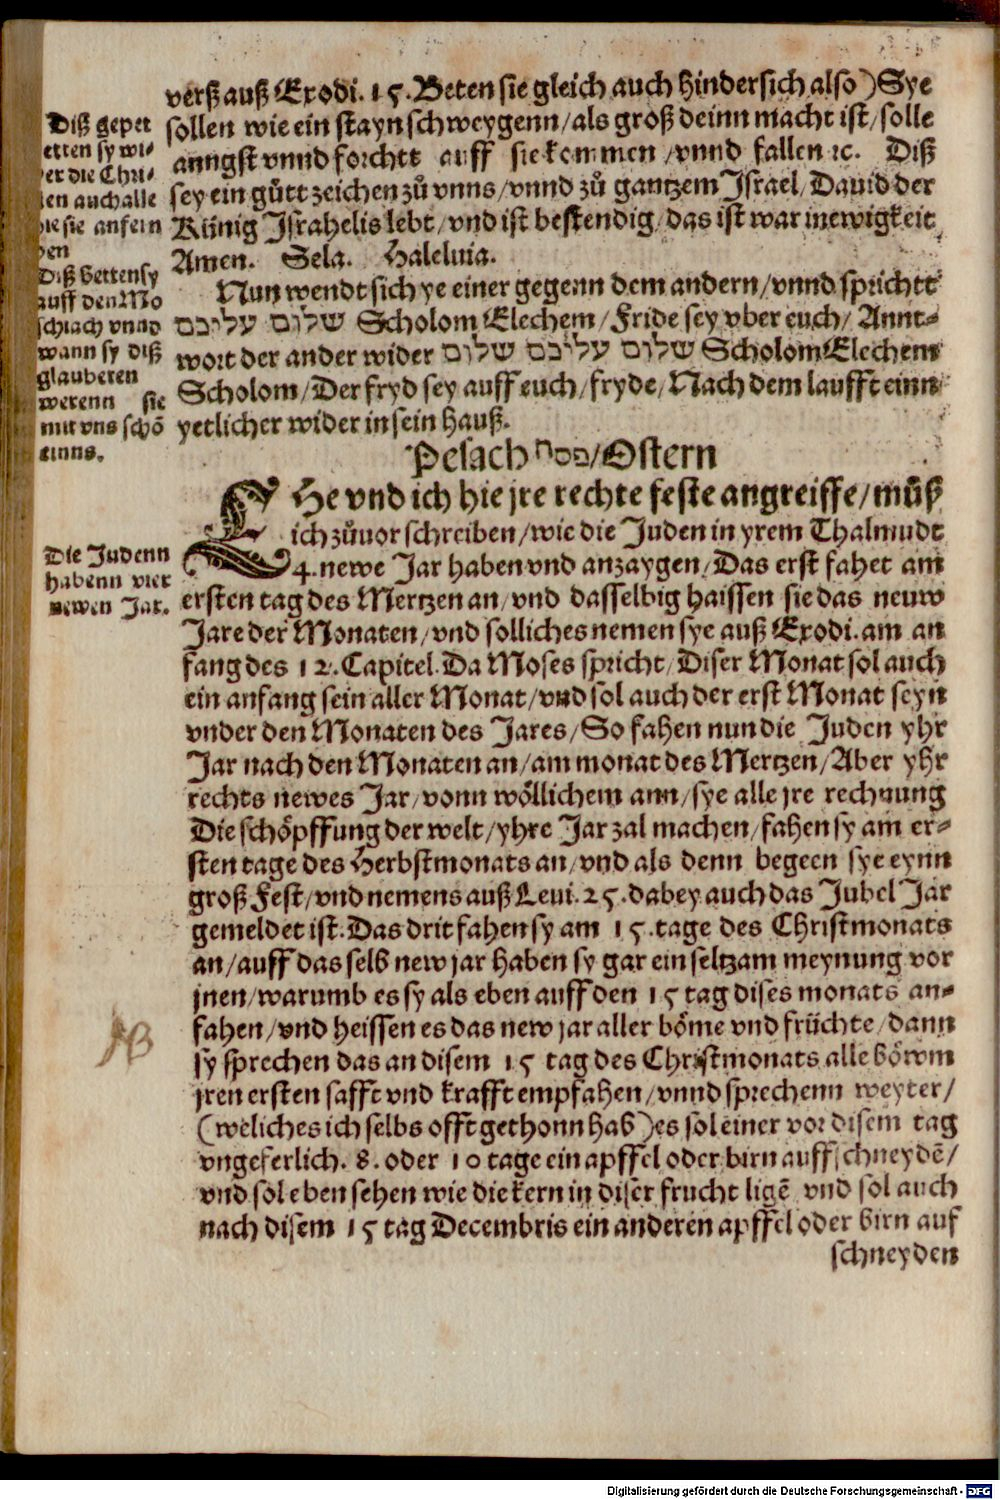 verß auß Exodi. 15. Beten sie gleich auch hindersich also) Sye
sollen wie ein stayn schweygenn/als groß deinn macht ist/solle
anngst vnnd forchtt auff sie kommen/vnnd fallen ꝛc. Diß
sey ein gůtt zeichen zů vnns/vnnd zů gantzem Israel/Dauid der
Künig Israhelis lebt/vnd ist bestendig/das ist war in ewigkeit
Amen. Sela. Haleluia.
Nun wendt sich ye einer gegenn dem andern/vnnd sprichtt
שלום עליכם Scholom Elechem/Fride sey vber euch/Annt⸗
wort der ander wider שלום עליכם שלום Scholom Elechem
Scholom/Der fryd sey auff euch/fryde/Nach dem laufft einn
yetlicher wider in sein hauß.
Diß gepet
etten sy wi⸗
er die Chri⸗
en auch alle
ie sie anfein
en
Diß bettensy
auff den Mo
schiach vnnd
wann sy diß
glaubeten
werenn sie
mit vns schõ
einns.
Pesach פסח/Ostern
EHe vnd ich hie jre rechte feste angreiffe/můß
ich zůuor schreiben/wie die Juden in yrem Thalmudt
4. newe Jar haben vnd anzaygen/Das erst fahet am
ersten tag des Mertzen an/vnd dasselbig haissen sie das neuw
Jare der Monaten/vnd solliches nemen sye auß Exodi. am an
fang des 12. Capitel. Da Moses spricht/Diser Monat sol auch
ein anfang sein aller Monat/vnd sol auch der erst Monat seyn
vnder den Monaten des Jares/So fahen nun die Juden yhr
Jar nach den Monaten an/am monat des Mertzen/Aber yhr
rechts newes Jar/vonn wöllichem ann/sye alle jre rechnung
Die schöpffung der welt/yhre Jarzal machen/fahen sy am er⸗
sten tage des Herbstmonats an/vnd als denn begeen sye eynn
groß Fest/vnd nemens auß Leui. 25. dabey auch das Jubel Jar
gemeldet ist. Das drit fahen sy am 15. tage des Christmonats
an/auff das selb new jar haben sy gar ein seltzam meynung vor
jnen/warumb es sy als eben auff den 15 tag dises monats an⸗
fahen/vnd heissen es das new jar aller böme vnd früchte/dann
sy sprechen das an disem 15 tag des Christmonats alle böwm
jren ersten safft vnd krafft empfahen/vnnd sprechenn weyter/
(weliches ich selbs offt gethonn hab) es sol einer vor disem tag
vngeferlich. 8. oder 10 tage ein apffel oder birn auffschneydẽ/
vnd sol eben sehen wie die kern in diser frucht ligẽ vnd sol auch
nach disem 15 tag Decembris ein anderen apffel oder birn auf
schneyden
Die Judenn
habenn vier
newen Jar.
Digitalisierung gefördert durch die Deutsche Forschungsgemeinschaft - DFG